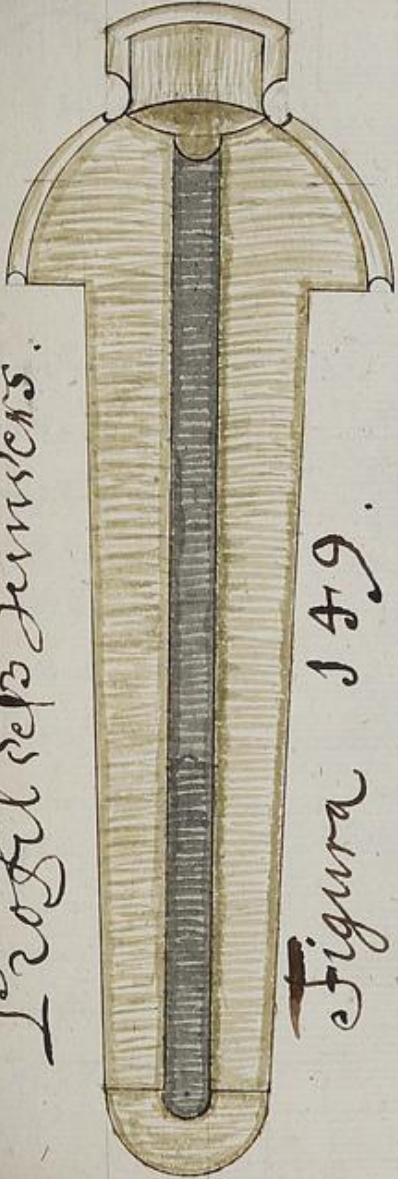 Profil deß Zünders.
Figura 149.